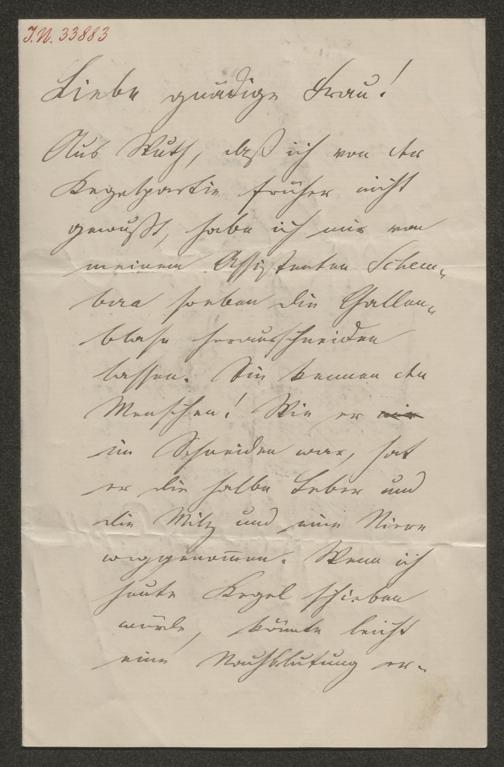 I.N. 33883
Liebe gnädige Frau!
Aus Wuth, daß ich von der
Kegelpartie früher nicht
gewußt, habe ich mir von
meinem Assistenten Schem-
bra soeben die Gallen-
blase herausschneiden
lassen. Sie kennen den
Menschen! Wie er mir
im Schneiden war, hat
er die halbe Leber und
die Milz und eine Niere
weggenommen. Wenn ich
heute Kegel schieben
würde, könnte leicht
eine Nachblutung er-